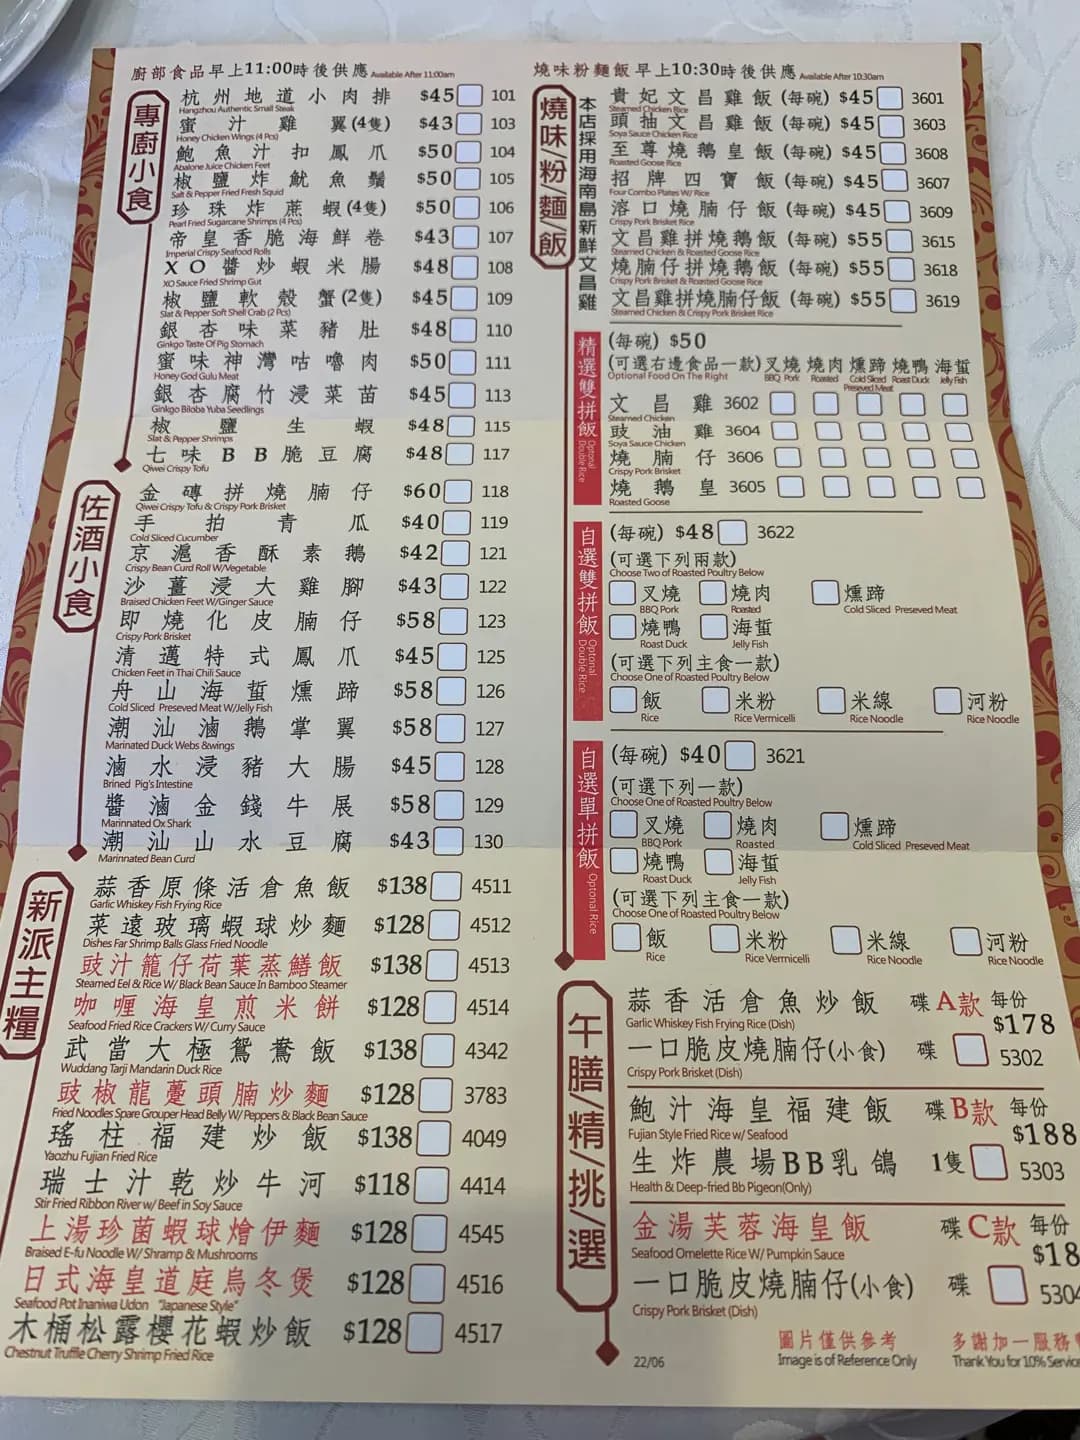 廚部食品早上11:00時後供應 Available After 11:00am
專廚小食
杭州地道小肉排 $45 101
Hangzhou Authentic Small Steak
蜜汁雞翼(4隻) $43 103
Honey Chicken Wings (4 Pcs)
鮑魚汁扣鳳爪 $50 104
Abalone Juice Chicken Feet
椒鹽炸魷魚鬚 $50 105
Salt & Pepper Fried Fresh Squid
珍珠炸蔗蝦(4隻) $50 106
Pearl Fried Sugarcane Shrimps (4 Pcs)
帝皇香脆海鮮卷 $43 107
Imperial Crispy Seafood Rolls
XO醬炒蝦米腸 $48 108
XO Sauce Fried Shrimp Gut
椒鹽軟殼蟹(2隻) $45 109
Slat & Pepper Soft Shell Crab (2 Pcs)
銀杏味菜豬肚 $48 110
Ginkgo Taste Of Pig Stomach
蜜味神灣咕嚕肉 $50 111
Honey God Gulu Meat
銀杏腐竹浸菜苗 $45 113
Ginkgo Biloba Yuba Seedlings
椒鹽生蝦 $48 115
Slat & Pepper Shrimps
七味BB脆豆腐 $48 117
Qiwei Crispy Tofu
佐酒小食
金磚拼燒腩仔 $60 118
Qiwei Crispy Tofu & Crispy Pork Brisket
手拍青瓜 $40 119
Cold Sliced Cucumber
京滬香酥素鵝 $42 121
Crispy Bean Curd Roll W/Vegetable
沙薑浸大雞腳 $43 122
Braised Chicken Feet W/Ginger Sauce
即燒化皮腩仔 $58 123
Crispy Pork Brisket
清邁特式鳳爪 $45 125
Chicken Feet in Thai Chili Sauce
舟山海蜇燻蹄 $58 126
Cold Sliced Preseved Meat W/Jelly Fish
潮汕滷鵝掌翼 $58 127
Marinated Duck Webs &wings
滷水浸豬大腸 $45 128
Brined Pig's Intestine
醬滷金錢牛展 $58 129
Marinnated Ox Shark
潮汕山水豆腐 $43 130
Marinnated Bean Curd
新派主糧
蒜香原條活倉魚飯 $138 4511
Garlic Whiskey Fish Frying Rice
菜遠玻璃蝦球炒麵 $128 4512
Dishes Far Shrimp Balls Glass Fried Noodle
豉汁籠仔荷葉蒸鱔飯 $138 4513
Steamed Eel & Rice W/ Black Bean Sauce In Bamboo Steamer
咖喱海皇煎米餅 $128 4514
Seafood Fried Rice Crackers W/ Curry Sauce
武當大極鴛鴦飯 $138 4342
Wuddang Tarji Mandarin Duck Rice
豉椒龍躉頭腩炒麵 $128 3783
Fried Noodles Spare Grouper Head Belly W/ Peppers & Black Bean Sauce
瑤柱福建炒飯 $138 4049
Yaozhu Fujian Fried Rice
瑞士汁乾炒牛河 $118 4414
Stir Fried Ribbon River w/ Beef in Soy Sauce
上湯珍菌蝦球燴伊麵 $128 4545
Braised E-fu Noodle W/ Shramp & Mushrooms
日式海皇道庭烏冬煲 $128 4516
Seafood Pot Inaniwa Udon "Japanese Style"
木桶松露櫻花蝦炒飯 $128 4517
Chestnut Truffle Cherry Shrimp Fried Rice
燒味粉麵飯早上10:30時後供應 Available After 10:30am
燒味/粉/麵/飯
本店採用海南島新鮮文昌雞
貴妃文昌雞飯(每碗) $45 3601
Steamed Chicken Rice
頭抽文昌雞飯(每碗) $45 3603
Soya Sauce Chicken Rice
至尊燒鵝皇飯(每碗) $45 3608
Roasted Goose Rice
招牌四寶飯(每碗) $45 3607
Four Combo Plates W/ Rice
溶口燒腩仔飯(每碗) $45 3609
Crispy Pork Brisket Rice
文昌雞拼燒鵝飯(每碗) $55 3615
Steamed Chicken & Roasted Goose Rice
燒腩仔拼燒鵝飯(每碗) $55 3618
Crispy Pork Brisket & Roasted Goose Rice
文昌雞拼燒腩仔飯(每碗) $55 3619
Steamed Chicken & Crispy Pork Brisket Rice
精選雙拼飯 Optional Double Rice
(每碗) $50
(可選右邊食品一款) 叉燒 燒肉 燻蹄 燒鴨 海蜇
Optional Food On The Right BBQ Pork Roasted Cold Sliced Preseved Meat Roast Duck Jelly Fish
文昌雞 3602
Steamed Chicken
豉油雞 3604
Soya Sauce Chicken
燒腩仔 3606
Crispy Pork Brisket
燒鵝皇 3605
Roasted Goose
自選雙拼飯 Optional Double Rice
(每碗) $48 3622
(可選下列兩款)
Choose Two of Roasted Poultry Below
叉燒 燒肉 燻蹄
BBQ Pork Roasted Cold Sliced Preseved Meat
燒鴨 海蜇
Roast Duck Jelly Fish
(可選下列主食一款)
Choose One of Roasted Poultry Below
飯 米粉 米線 河粉
Rice Rice Vermicelli Rice Noodle Rice Noodle
自選單拼飯 Optional Rice
(每碗) $40 3621
(可選下列一款)
Choose One of Roasted Poultry Below
叉燒 燒肉 燻蹄
BBQ Pork Roasted Cold Sliced Preseved Meat
燒鴨 海蜇
Roast Duck Jelly Fish
(可選下列主食一款)
Choose One of Roasted Poultry Below
飯 米粉 米線 河粉
Rice Rice Vermicelli Rice Noodle Rice Noodle
午膳/精/挑/選
蒜香活倉魚炒飯 碟 A款 每份 $178
Garlic Whiskey Fish Frying Rice (Dish)
一口脆皮燒腩仔(小食) 碟 5302
Crispy Pork Brisket (Dish)
鮑汁海皇福建飯 碟 B款 每份 $188
Fujian Style Fried Rice w/ Seafood
生炸農場BB乳鴿 1隻 5303
Health & Deep-fried Bb Pigeon(Only)
金湯芙蓉海皇飯 碟 C款 每份 $18
Seafood Omelette Rice W/ Pumpkin Sauce
一口脆皮燒腩仔(小食) 碟 5304
Crispy Pork Brisket (Dish)
22/06
圖片僅供參考 多謝加一服務
Image is of Reference Only Thank You for 10% Service